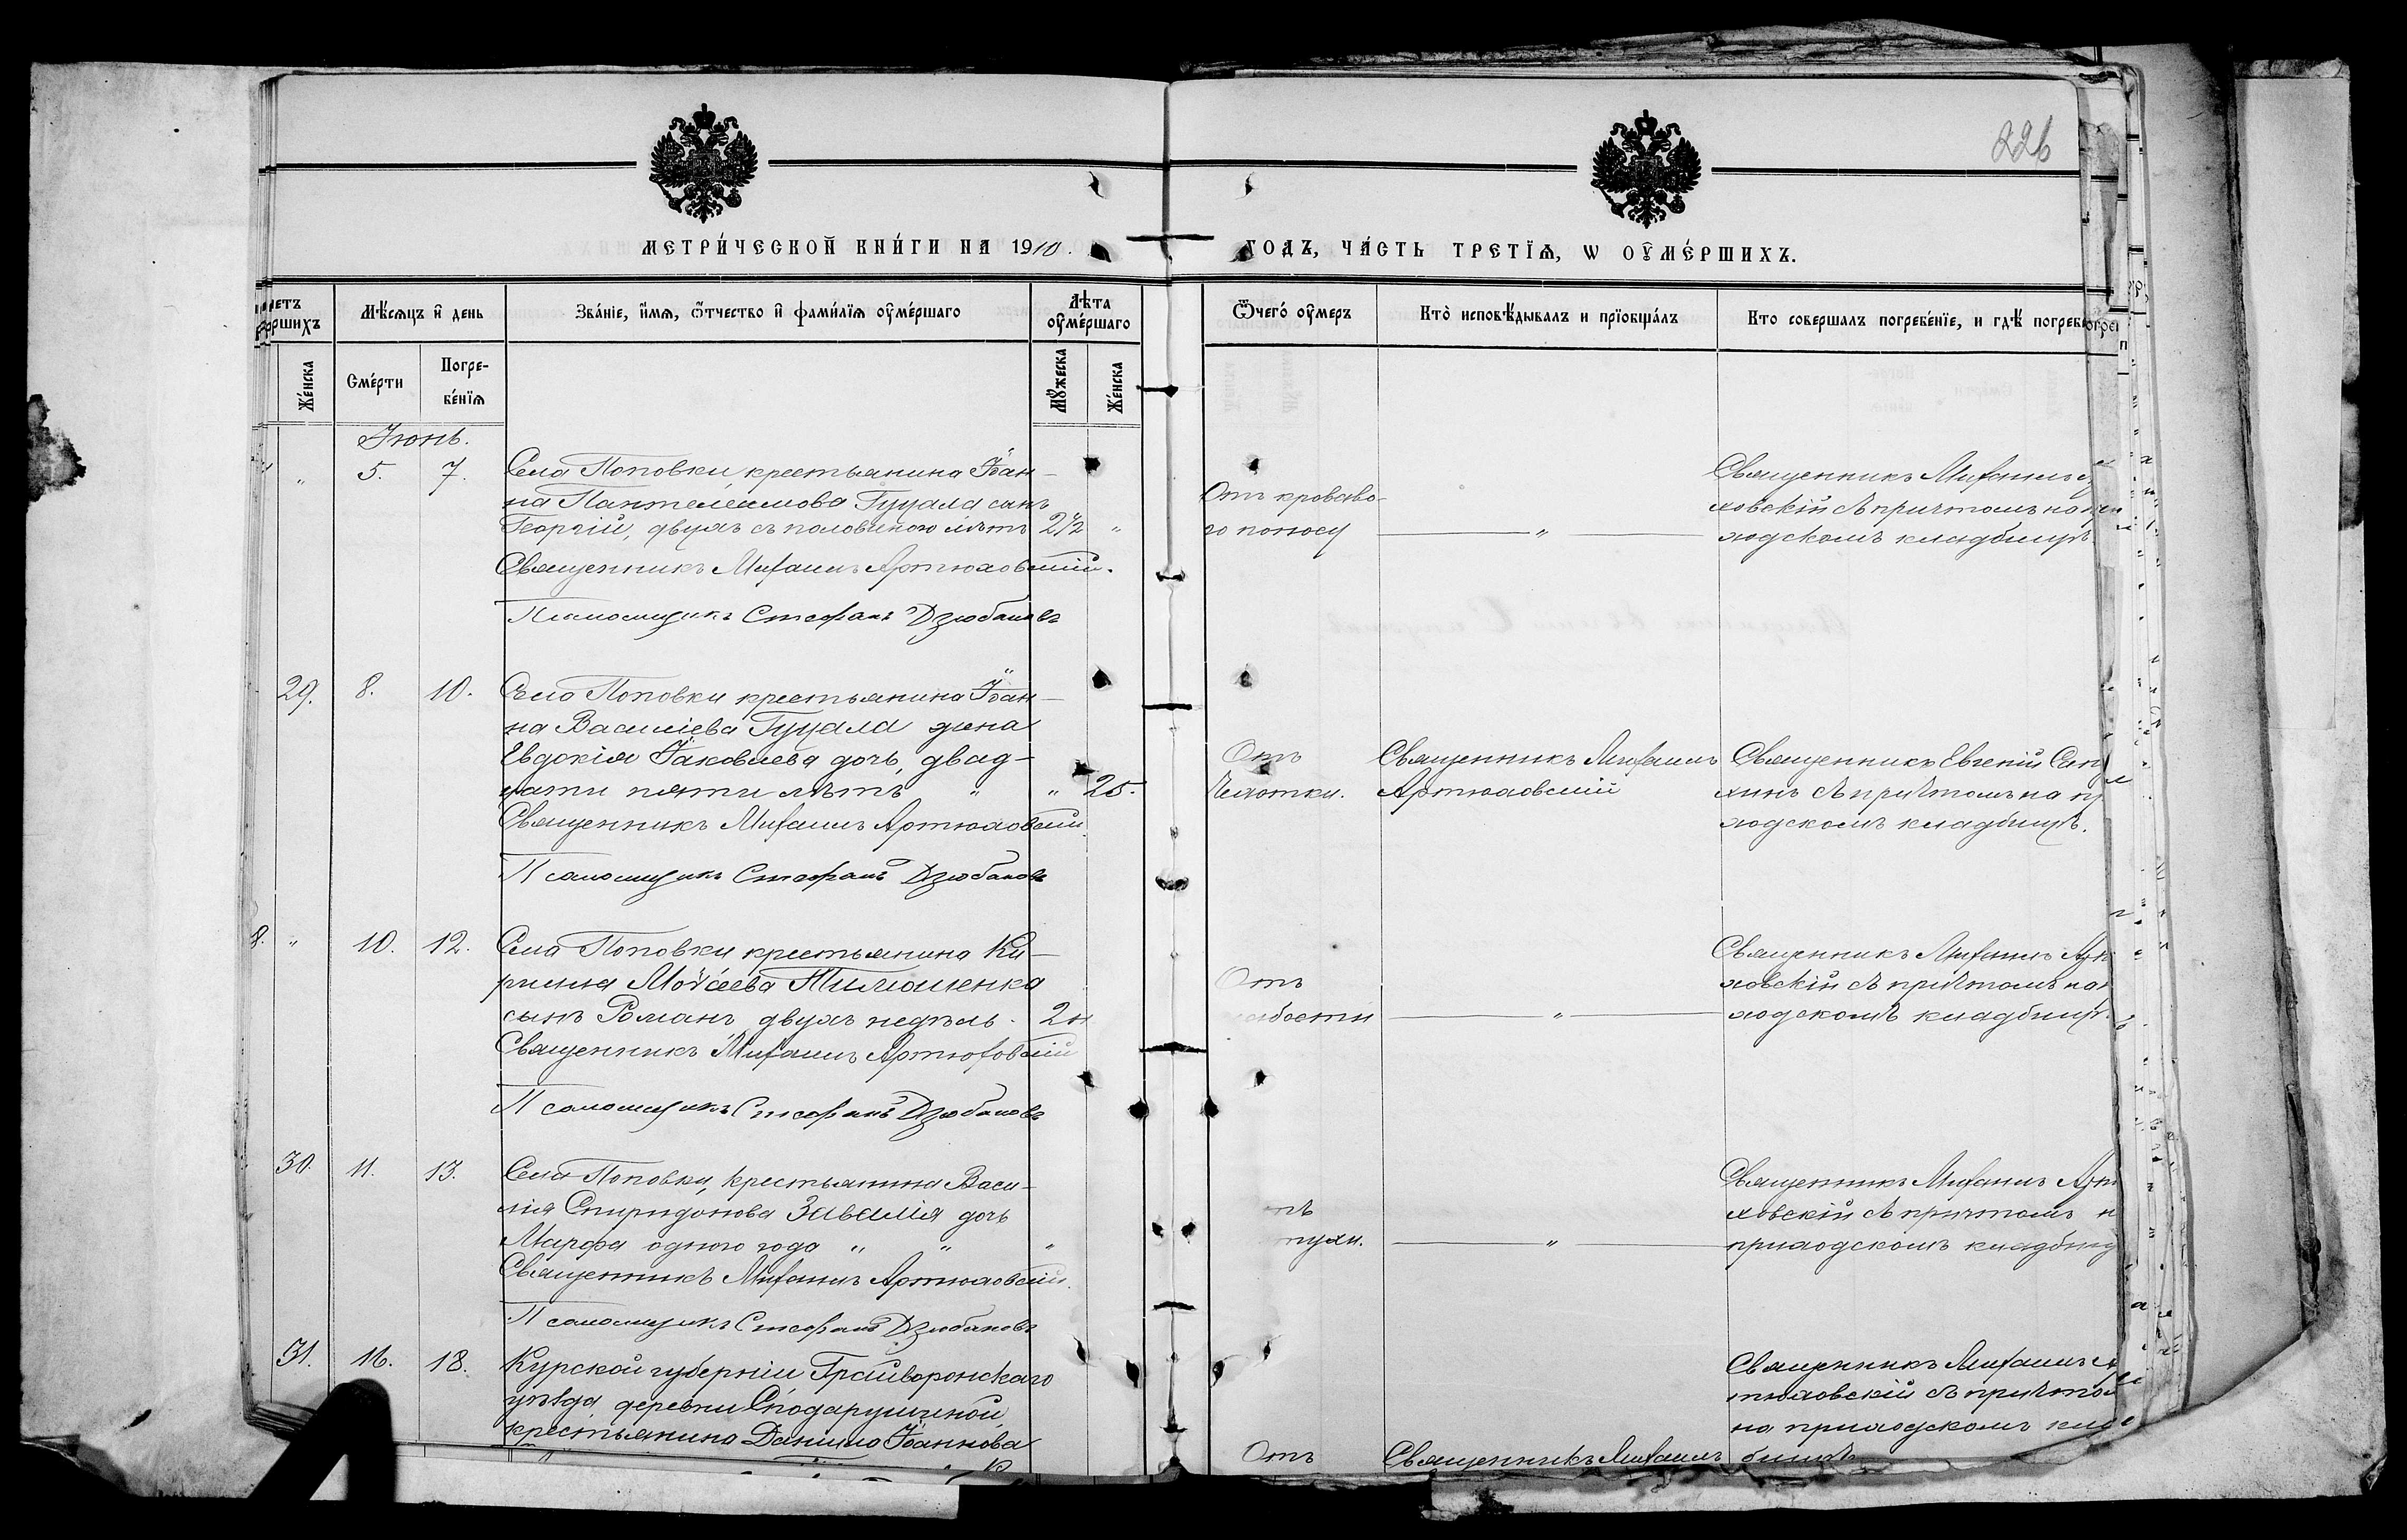 226
МЕТРИ́ЧЕСКОЙ КНИ́ГИ НА 1910.
ГОДЪ, ЧА́СТЬ ТРЕТЇѦ, Ѡ ОУМЕ́РШИХЪ.
Мѣсяцъ и день
Зва́нїе, и́мя, ѻтчество и фами́лїя оуме́ршаго
Лѣта оуме́ршаго
Ѿчегѡ́ оу́меръ
Кто̀ исповѣ́дывалъ и прїобща́лъ
Кто совершалъ погребе́нїе, и гдѣ̀
Же́нска
Сме́рти
Погре-
бе́нїя
Мꙋ́жеска
Же́нска
Іюнь.
" 5. 7. Села Поповки крестьянина Іоан-
на Пантелеимова Гуцала сынъ
Георгій, двухъ съ половиною лѣтъ 2½ "
Священникъ Михаилъ Артюховскій.
Псаломщикъ Стефанъ Дзюбановъ
Отъ кроваво-
го поносу "
Священникъ Михаилъ
ховскій съ причтомъ на
ходскомъ кладбищѣ.
29. 8. 10. Села Поповки крестьянина Іоан-
на Василіева Гуцала жена
Евдокія Іаковлева дочь, двад-
цати пяти лѣтъ " " 25.
Священникъ Михаилъ Артюховскій
Псаломщикъ Стефанъ Дзюбановъ
Отъ
Чахотки.
Священникъ Михаилъ
Артюховскій
Священникъ Евгеній
хинъ съ причтомъ на
ходскомъ кладбищѣ.
8. " 10. 12. Села Поповки крестьянина Ки-
рилла Моѵсеева Тимошенка
сынъ Романъ двухъ недѣль. 2н
Священникъ Михаилъ Артюховскій
Псаломщикъ Стефанъ Дзюбановъ
Отъ
абости "
Священникъ Михаилъ
ховскій съ причтомъ на
ходскомъ кладбищѣ
30. 11. 13. Села Поповки, крестьянина Васи-
лія Спиридонова Завалія дочь
Марфа одного года " " "
Священникъ Михаилъ Артюховскій.
Псаломщикъ Стефанъ Дзюбановъ
"
Священникъ Михаилъ
ховскій съ причтомъ
приходскомъ кладбищ
31. 16. 18. Курской губерніи Грайворонскаго
уѣзда деревни
крестьянина Даніила Іоаннова
Отъ
Священникъ Михаилъ
Священникъ Михаилъ
тюховскій съ причтом
на приходскомъ клад
бищѣ